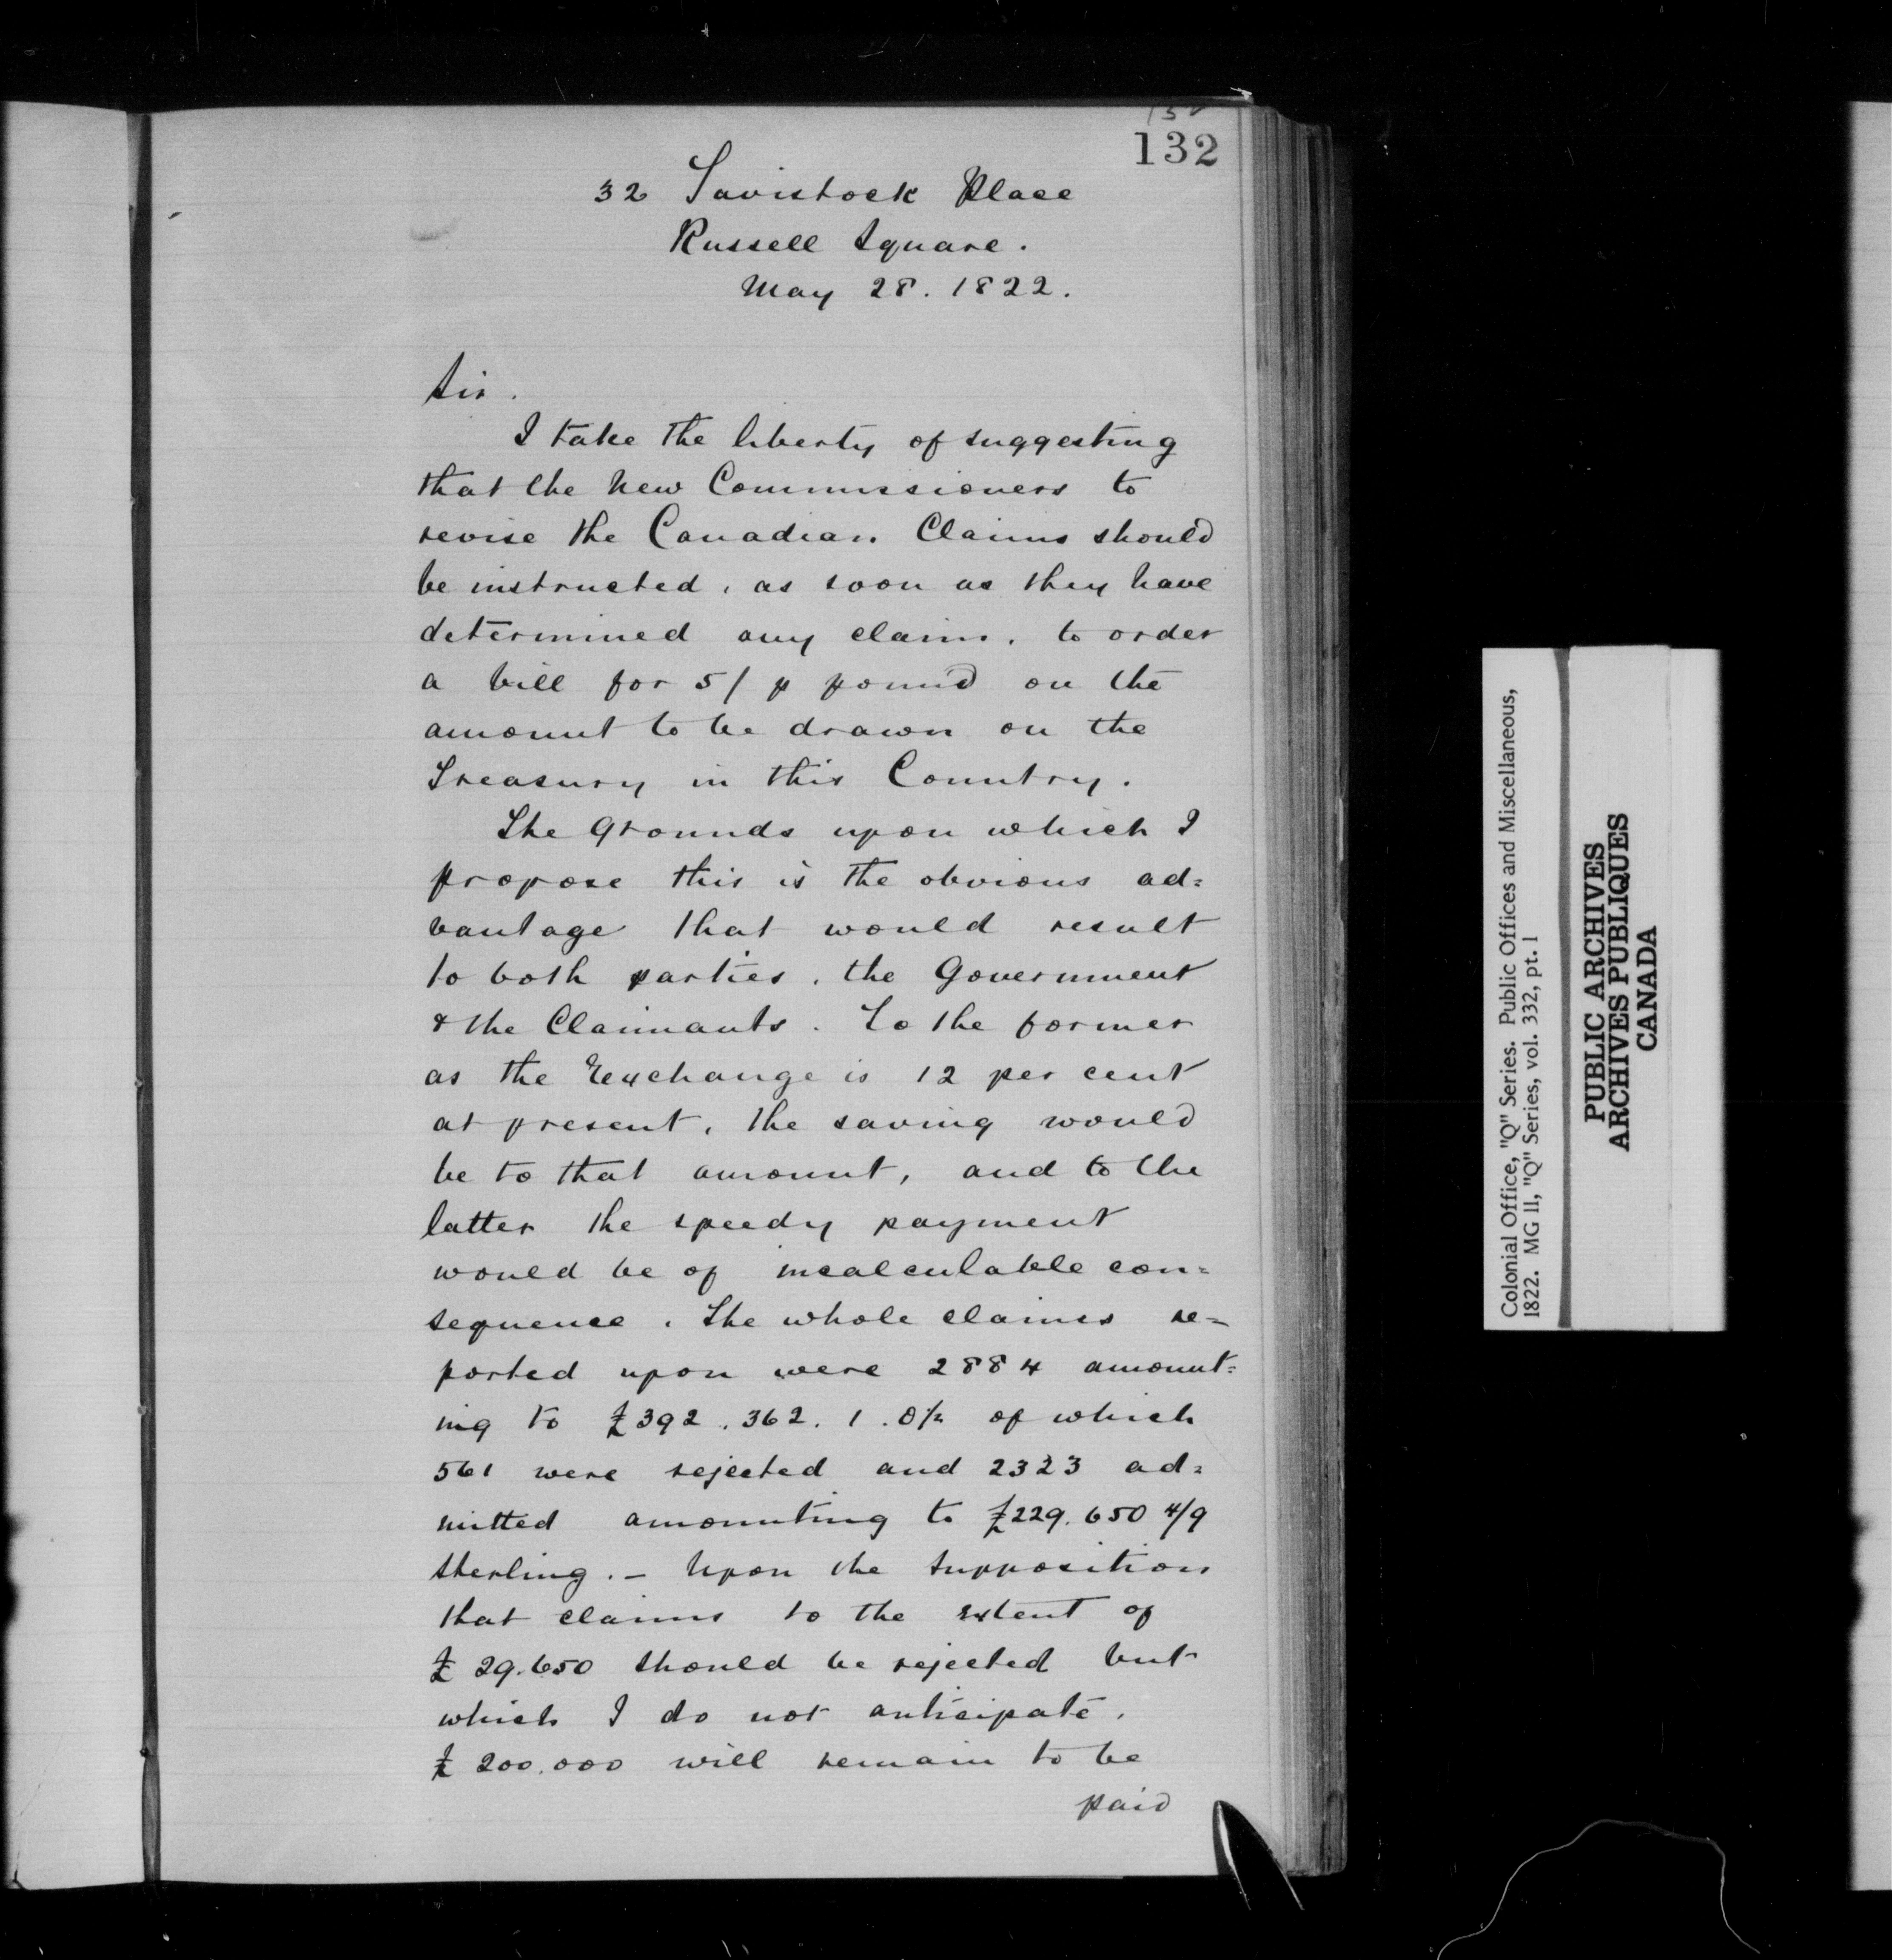 132
32 Tavistock Place
Russell Square.
May 28. 1822.
Sir.
I take the liberty of suggesting
that the New Commissioners to
revise the Canadian Claims should
be instructed, as soon as they have
determined any claim, to order
a bill for 5/ p pound on the
amount to be drawn on the
Treasury in this Country.
The Grounds upon which I
propose this is the obvious ad=
vantage that would result
to both parties, the Government
& the Claimants. To the former
as the Exchange is 12 per cent
at present, the saving would
be to that amount, and to the
latter the speedy payment
would be of incalculable con=
sequence. The whole claims re=
ported upon were 2884 amount=
ing to £392.362.1.8½ of which
561 were rejected and 2323 ad=
mitted amounting to £229.650 4/9
Sterling.- Upon the Supposition
that claims to the extent of
£29.650 should be rejected but
which I do not anticipate,
£200.000 will remain to be
paid
Colonial Office, "Q" Series. Public Offices and Miscellaneous,
1822. MG 11, "Q" Series, vol. 332, pt. 1
PUBLIC ARCHIVES
ARCHIVES PUBLIQUES
CANADA